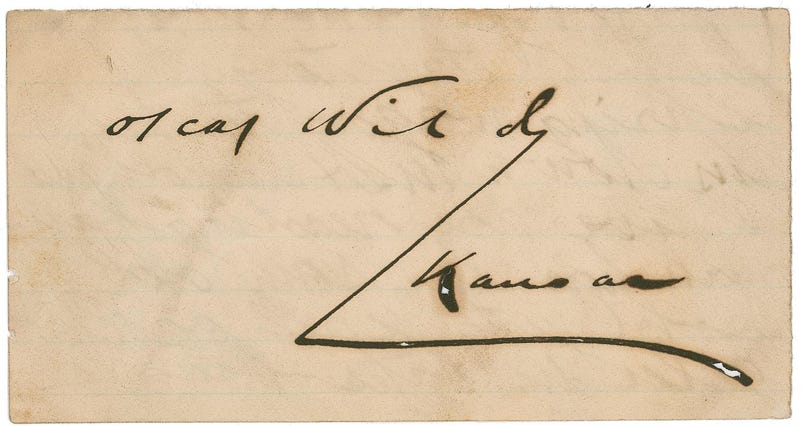 Oscar Wilde
Kansas